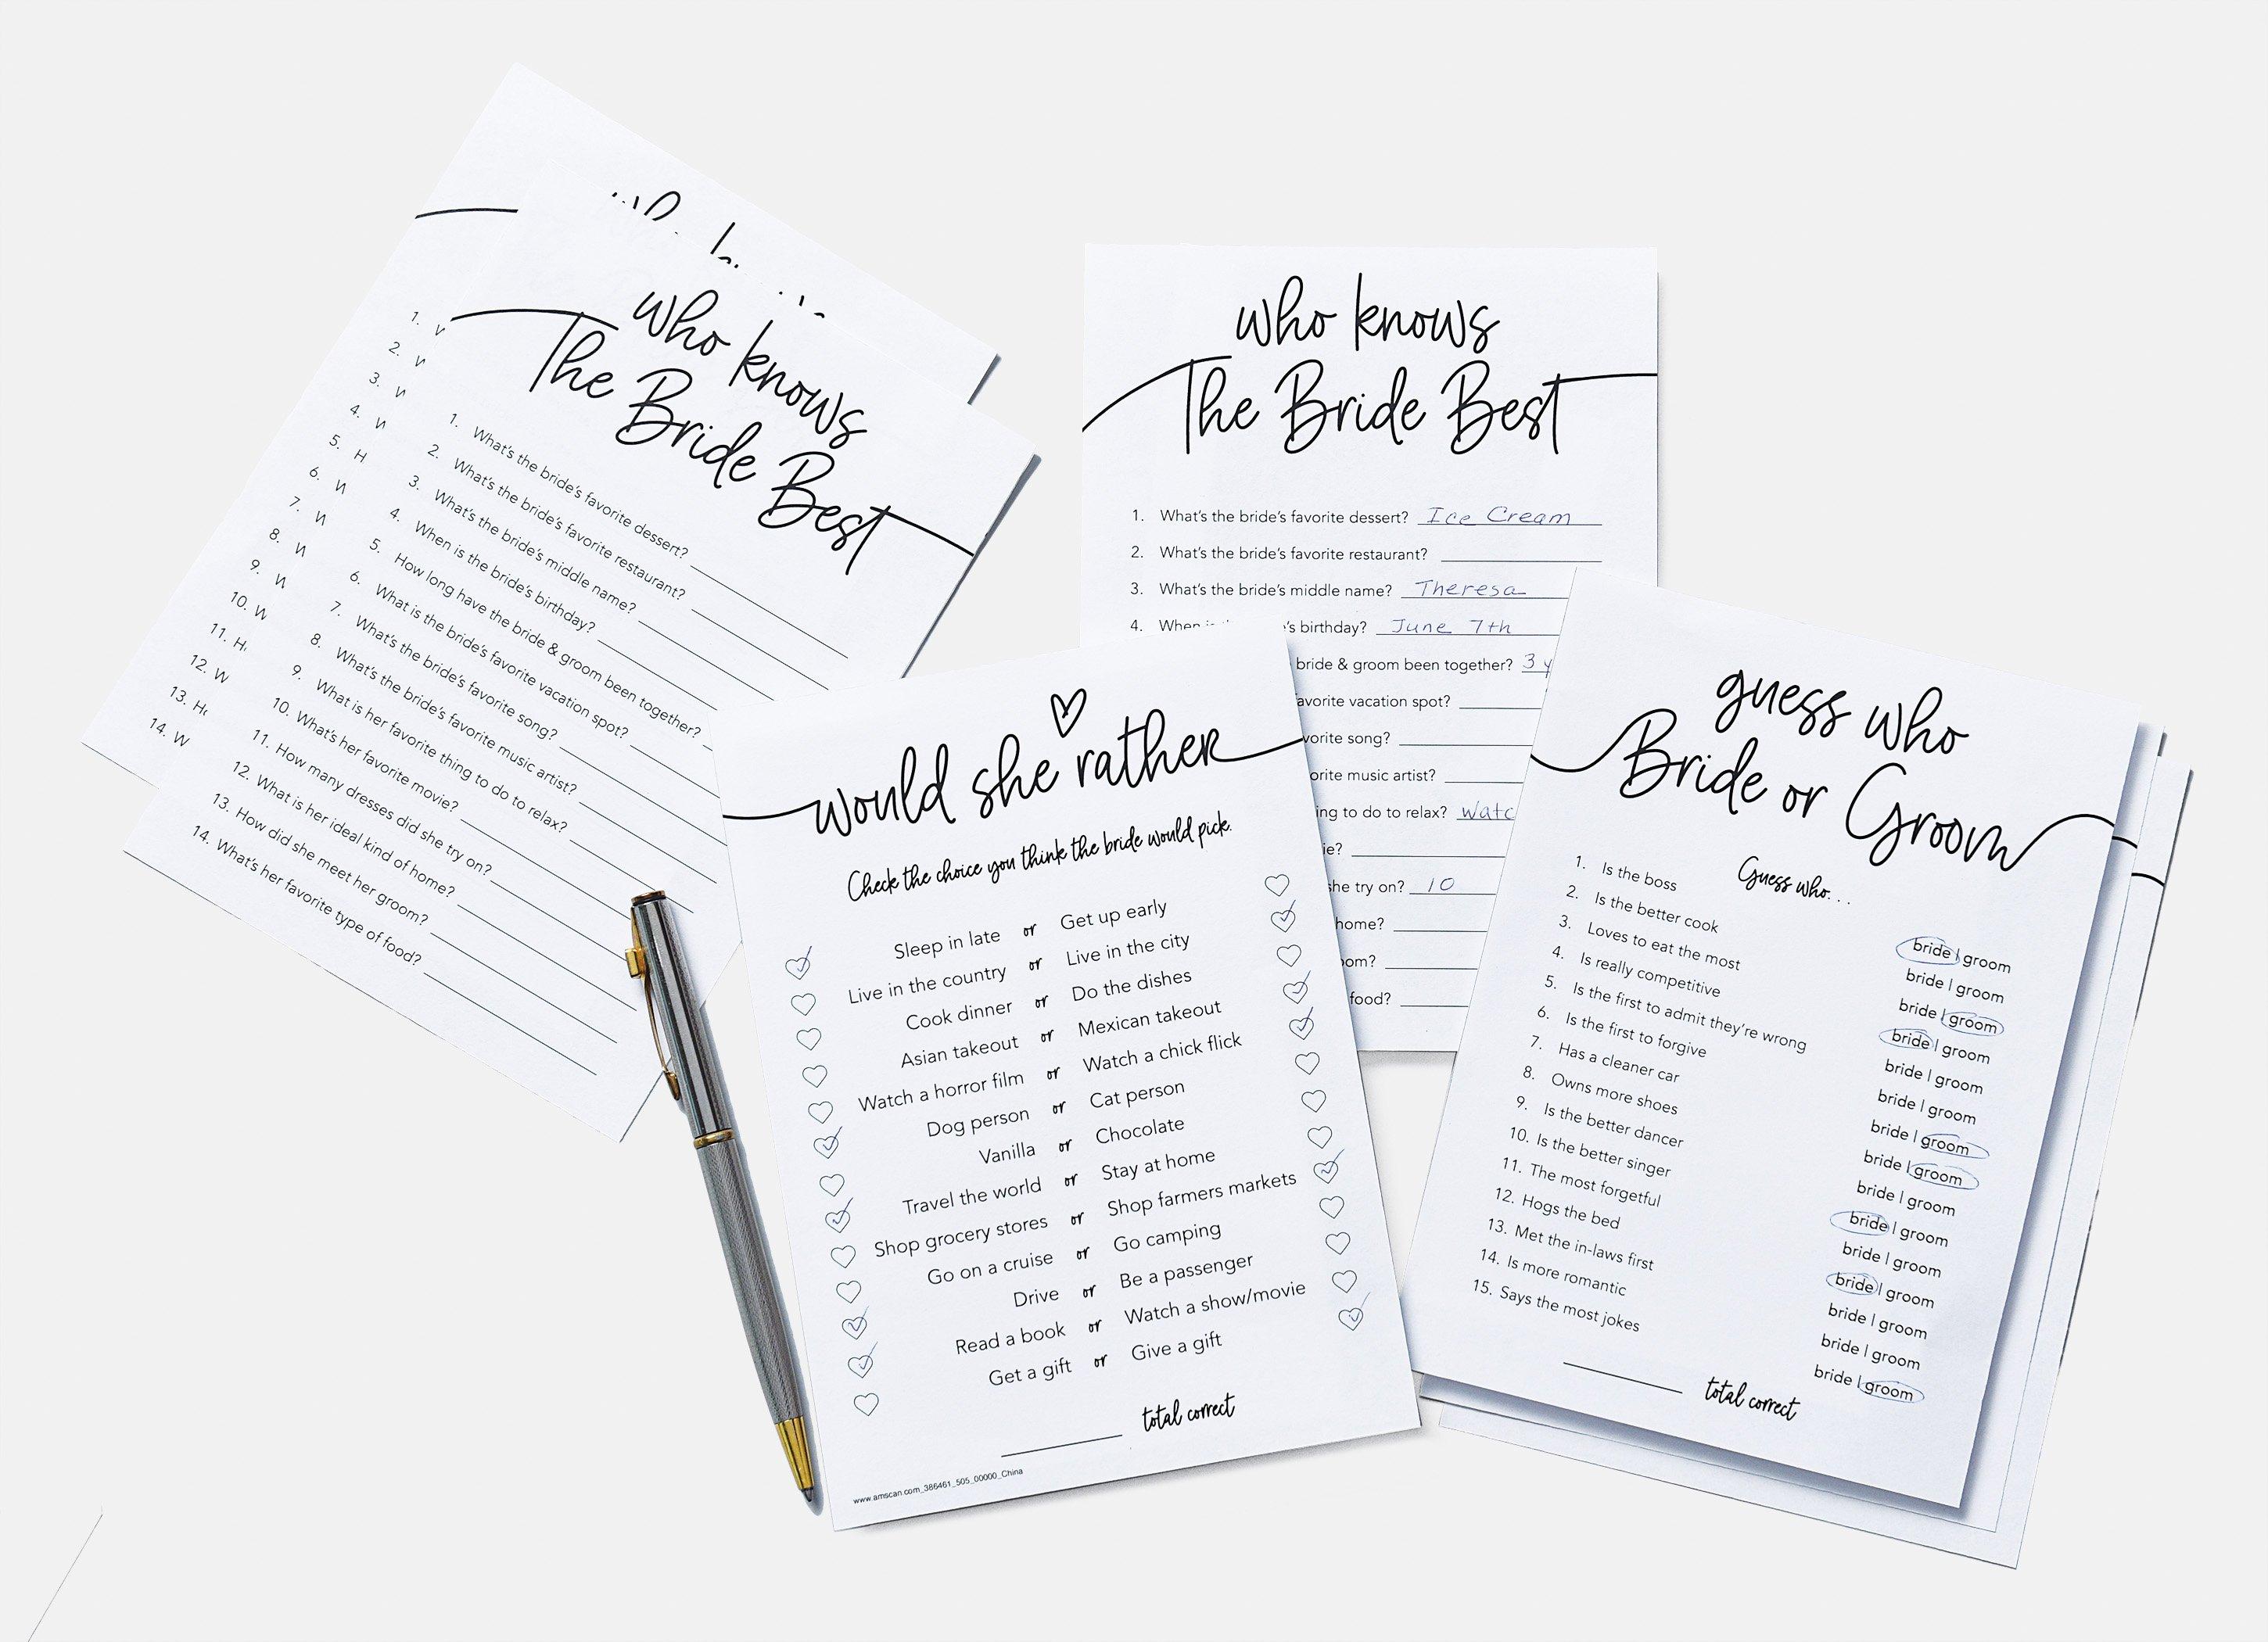 who knows
The Bride Best
1. What's the bride's favorite dessert?
2. What's the bride's favorite restaurant?
3. What's the bride's middle name?
4. When is the bride's birthday?
5. How long have the bride & groom been together?
6. What is the bride's favorite vacation spot?
7. What's the bride's favorite song?
8. What's the bride's favorite music artist?
9. What is her favorite thing to do to relax?
10. What's her favorite movie?
11. How many dresses did she try on?
12. What is her ideal kind of home?
13. How did she meet her groom?
14. What's her favorite type of food?
1.
2.
3.
4.
5. H
6.
7.
8.
9.
10. W
11.
12. W
13.
14. W
who knows
The Bride Best
1. What's the bride's favorite dessert? Ice Cream
2. What's the bride's favorite restaurant?
3. What's the bride's middle name? Theresa
4. When 's birthday? June 7th
bride & groom been together? 3 y
avorite vacation spot?
vorite song?
orite music artist?
ing to do to relax? watc
ie?
she try on? 10
home?
om?
food?
would she rather
Check the choice you think the bride would pick.
Sleep in late or Get up early
Live in the country or Live in the city
Cook dinner or Do the dishes
Asian takeout or Mexican takeout
Watch a horror film or Watch a chick flick
Dog person or Cat person
Vanilla or Chocolate
Travel the world or Stay at home
Shop grocery stores or Shop farmers markets
Go on a cruise or Go camping
Drive or Be a passenger
Read a book or Watch a show/movie
Get a gift or Give a gift
total correct
www.amscan.com_386461_505_00000_China
guess who
Bride or Groom
Guess who. . .
1. Is the boss bride | groom
2. Is the better cook bride | groom
3. Loves to eat the most bride | groom
4. Is really competitive bride | groom
5. Is the first to admit they're wrong bride | groom
6. Is the first to forgive bride | groom
7. Has a cleaner car bride | groom
8. Owns more shoes bride | groom
9. Is the better dancer bride | groom
10. Is the better singer bride | groom
11. The most forgetful bride | groom
12. Hogs the bed bride | groom
13. Met the in-laws first bride | groom
14. Is more romantic bride | groom
15. Says the most jokes bride | groom
total correct